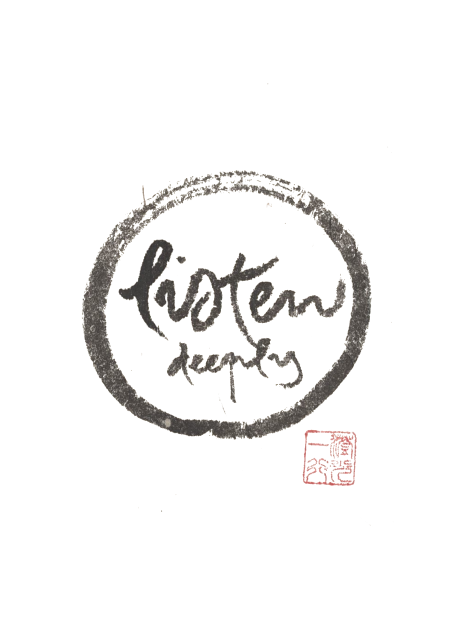 listen
deeply
一行